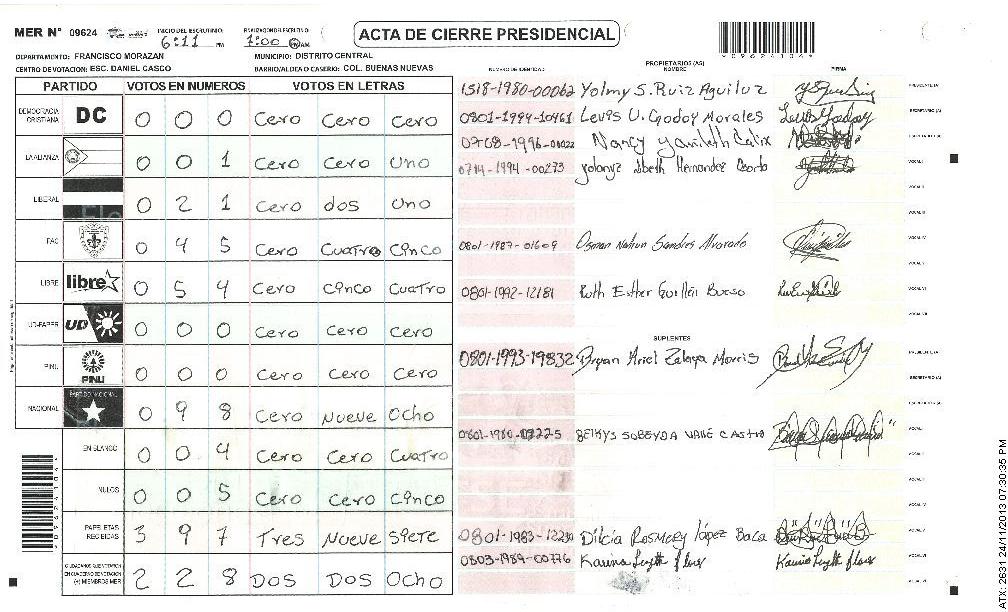 MER N° 09624
INICIO DEL ESCRUTINIO: 6:11 PM
FINALIZACION DEL ESCRUTINIO: 7:00 AM
ACTA DE CIERRE PRESIDENCIAL
DEPARTAMENTO: FRANCISCO MORAZAN
MUNICIPIO: DISTRITO CENTRAL
CENTRO DE VOTACION: ESC. DANIEL CASCO
BARRIO/ALDEA O CASERIO: COL. BUENAS NUEVAS
PARTIDO VOTOS EN NUMEROS VOTOS EN LETRAS
DEMOCRACIA CRISTIANA DC 0 0 0 Cero Cero Cero
LA ALIANZA 0 0 1 Cero Cero Uno
LIBERAL 0 2 1 Cero dos Uno
PAC 0 4 5 Cero Cuatro Cinco
LIBRE libre 0 5 4 Cero cinco Cuatro
UD-FAPER UD 0 0 0 Cero Cero Cero
PINU PINU 0 0 0 Cero Cero Cero
NACIONAL PARTIDO NACIONAL 0 9 8 Cero Nueve Ocho
EN BLANCO 0 0 4 Cero Cero Cuatro
NULOS 0 0 5 Cero Cero Cinco
PAPELETAS RECIBIDAS 3 9 7 Tres Nueve Siete
(+) MIEMBROS MER 2 2 8 Dos Dos Ocho
NUMERO DE IDENTIDAD
PROPIETARIOS (AS)
NOMBRE
FIRMA
1518-1980-00062 Yolmy S. Ruiz Aguiluz PRESIDENTE (A)
0801-1994-10461 Levis U. Godoy Morales SECRETARIO (A)
0708-1996-00022 Nancy Yamileth Calix
0714-1994-00273 Hernandez VOCAL I
0801-1987-01609 Osman Nahun Sandres Alvarado VOCAL IV
0801-1992-12181 Ruth Esther Guillén Bueso
SUPLENTES
0801-1993-19832 Bryan Ariel Zelaya Morris PRESIDENTE (A)
SECRETARIO (A)
0801-1980-07225 BELKYS SOBEYDA VALLE CASTRO VOCAL I
0801-1983-12230 Dilcia Rosmery López Baca
0803-1989-00776 Karina Lizeth flores Karina Lizeth flores
ATX: 2631 24/11/2013 07:30:35 PM